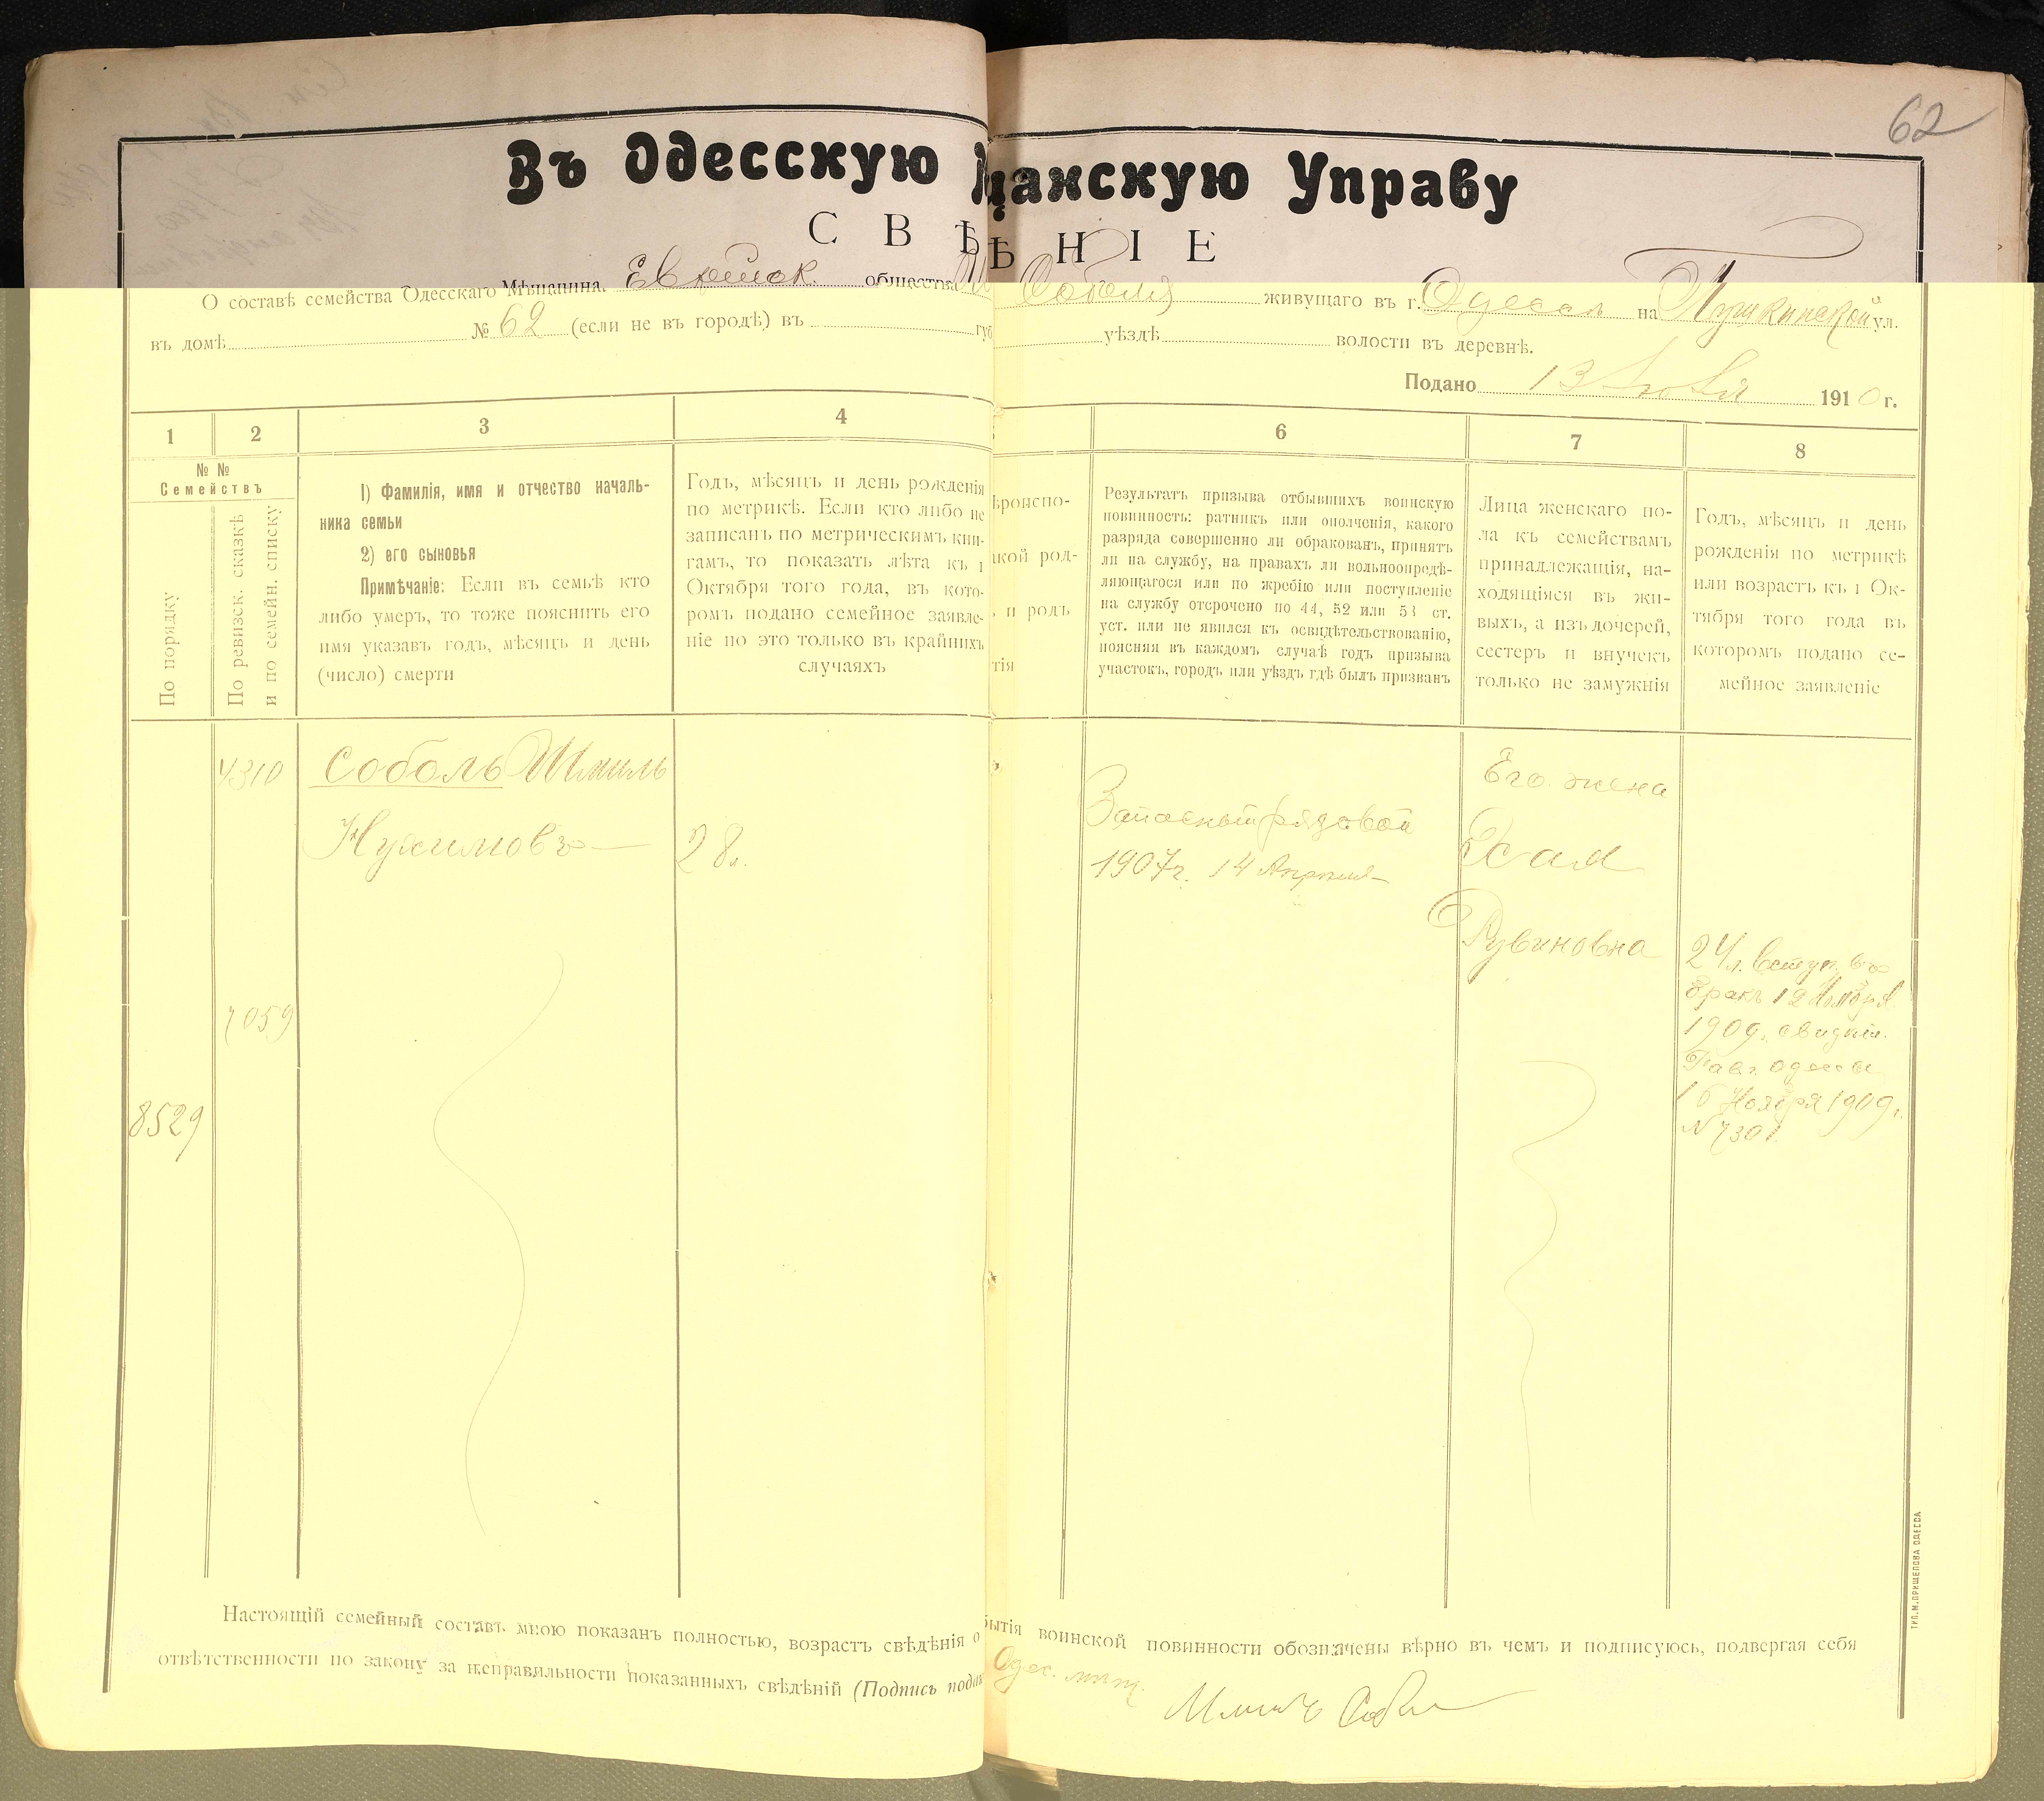 62
Въ Одесскую щанскую Управу
С В Ѣ Ѣ Н І Е
О составѣ семейства Одесскаго Мѣщанина Еврейск. общества Соболя живущаго въ г. Одессѣ на Пушкинской ул.
въ домѣ № 62 (если не въ городѣ) въ губ уѣздѣ волости въ деревнѣ.
Подано 13 1910 г.
1 2 3 4 6 7 8
№ №
Семействъ
По порядку
По ревизск. сказкѣ
и по семейн. списку
1) Фамилія, имя и отчество началь-
ника семьи
2) его сыновья
Примѣчаніе: Если въ семьѣ кто
либо умеръ, то тоже пояснить его
имя указавъ годъ, мѣсяцъ и день
(число) смерти
Годъ, мѣсяцъ и день рожденія
по метрикѣ. Если кто либо не
записанъ по метрическимъ кни-
гамъ, то показать лѣта къ 1
Октября того года, въ кото-
ромъ подано семейное заявле-
ніе но это только въ крайнихъ
случаяхъ
ѣроиспо-
акой род-
и родъ
тія
Результатъ призыва отбывшихъ воинскую
повинность: ратникъ или ополченія, какого
разряда совершенно ли обракованъ, принятъ
ли на службу, на правахъ ли вольноопредѣ-
ляющагося или по жребію или поступленіе
на службу отсрочено по 44, 52 или 53 ст.
уст. или не явился къ освидѣтельствованію,
поясняя въ каждомъ случаѣ годъ призыва
участокъ, городъ или уѣздъ гдѣ былъ призванъ
Лица женскаго по-
ла къ семействамъ
принадлежащія, на-
ходящіяся въ жи-
выхъ, а изъ дочерей,
сестеръ и внучекъ
только не замужнія
Годъ, мѣсяцъ и день
рожденія по метрикѣ
или возрастъ къ 1 Ок-
тября того года въ
которомъ подано се-
мейное заявленіе
4310
Соболь Шмиль
Нухимовъ
28 л.
7059
8529
Запасный рядовой
1907 г. 14 Апрѣля
Его жена
Хая
Рувиновна
24 л. вступ. въ
бракъ 12 Ноября
1909. свидѣт.
Рав. Одессы
16 Ноября 1909 г.
№ 7301.
Настоящій семейный составъ мною показанъ полностью, возрастъ свѣдѣнія о бытія воинской повинности обозначены вѣрно въ чемъ и подписуюсь, подвергая себя
отвѣтственности по закону за неправильности показанныхъ свѣдѣній (Подпись пода Одес. мѣщ.
Шмиль Соболь
ТИП. М. ПРИЩЕПОВА ОДЕССА